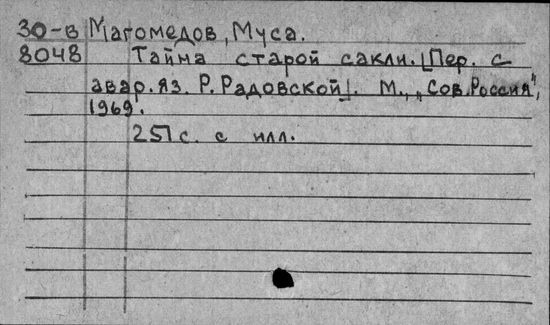 30-в Магомедов, Муса.
8048 Тайна старой сакли. [Пер. с
авар. яз. Р. Радовской]. М., "Сов. Россия",
1969.
251 с. с илл.